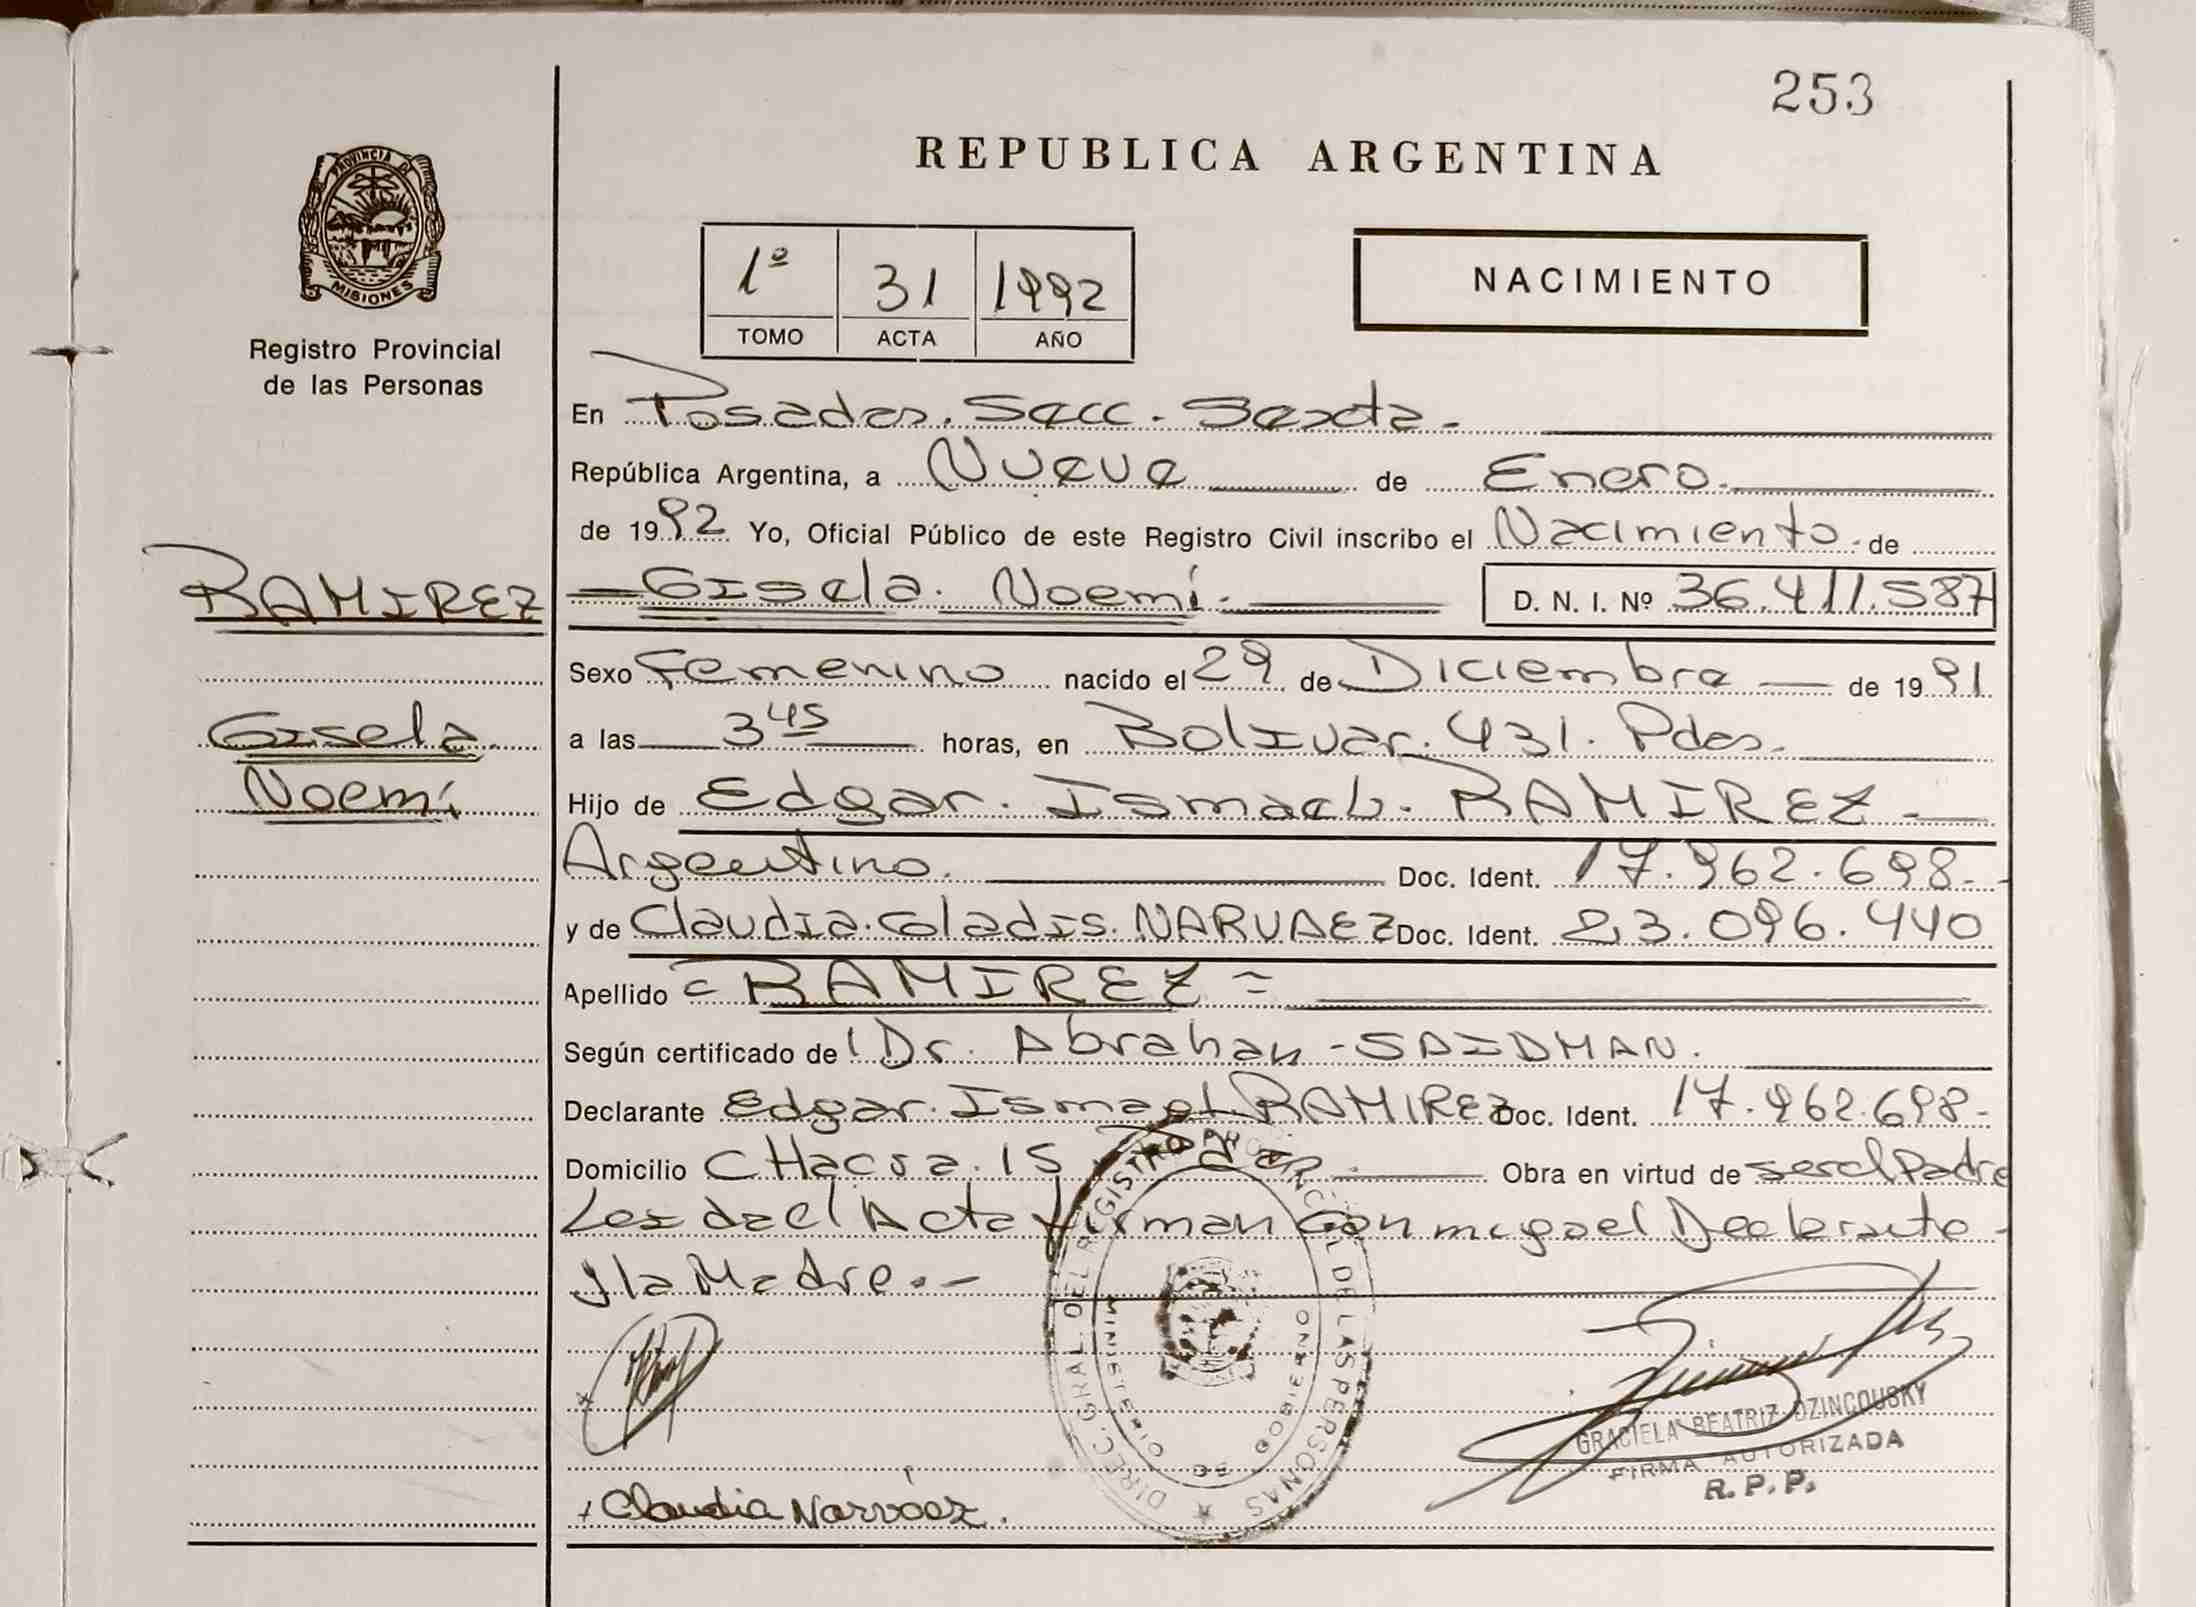 253
REPUBLICA ARGENTINA
PROVINCIA DE
MISIONES
Registro Provincial
de las Personas
1º 31 1992
TOMO ACTA AÑO
NACIMIENTO
En Posadas. Secc. Sexta.
República Argentina, a Nueve de Enero.
de 1992 Yo, Oficial Público de este Registro Civil inscribo el Nacimiento. de
RAMIREZ
Gisela. Noemí. D. N. I. Nº 36.411.587
Sexo Femenino nacido el 29 de Diciembre de 1991
Gisela
a las 3 45 horas, en Bolivar. 431. Pdas.
Noemí
Hijo de Edgar. Ismael. RAMIREZ
Argentino. Doc. Ident. 17.962.698-
y de Claudia. Gladis. NARVAEZ Doc. Ident. 23.096.440
Apellido = RAMIREZ =
Según certificado de Dr. Abrahan - SAIDMAN.
Declarante Edgar. Ismael. RAMIREZ Doc. Ident. 17.962.698-
Domicilio CHacra. 15 Pdas. Obra en virtud de ser el Padre
Leida el Acta firman conmigo el Declarante
y la Madre.-
DIREC. GRAL. DEL REGISTRO PROVINCIAL DE LAS PERSONAS
MINISTERIO DE GOBIERNO
GRACIELA BEATRIZ DZINCOUSKY
FIRMA AUTORIZADA
R. P. P.
Claudia Narváez.